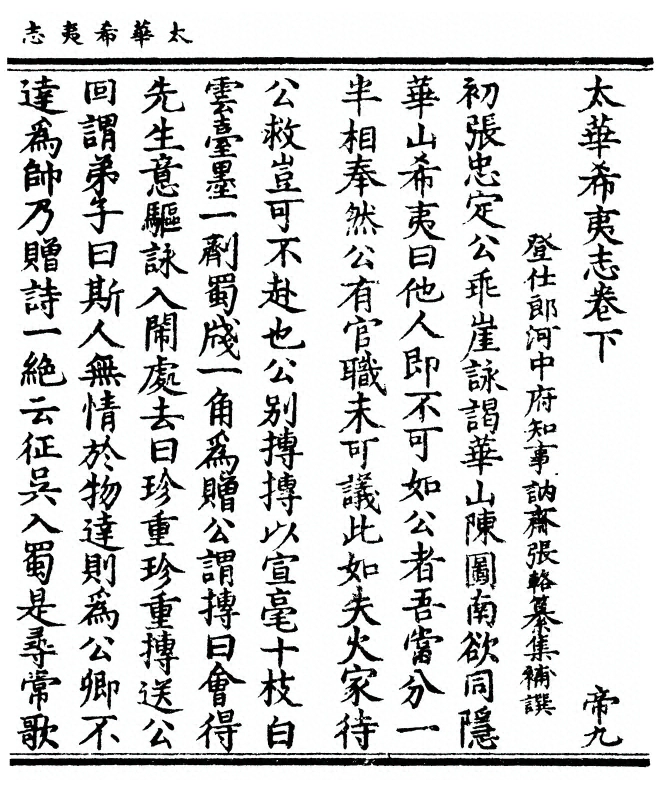 太華希夷志
太華希夷志卷下　帝九
登仕郎河中府知事訥齋張輅纂集補譔
初張忠定公乖崖詠謁華山陳圖南欲同隱
華山希夷曰他人即不可如公者吾當分一
半相奉然公有官職未可議此如失火家待
公救豈可不赴也公别摶摶以宣毫十枝白
雲臺墨一劑蜀牋一角爲贈公謂摶曰會得
先生意驅詠入閙處去曰珍重珍重摶送公
回謂弟子曰斯人無情於物達則爲公卿不
達爲帥乃贈詩一絶云征吳入蜀是尋常歌